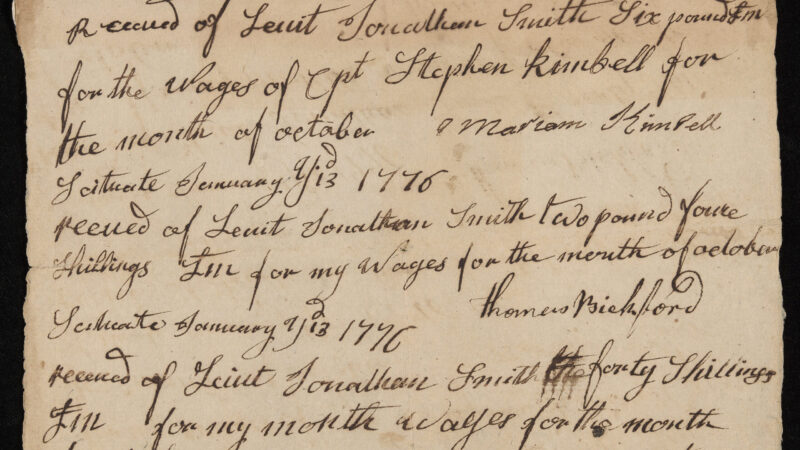 Receued of Leuit Jonathan Smith Six pound £m
for the Wages of Cpt Stephen Kimbell for
the month of october Mariam Kimbell
Scituate January yd 13 1776
receued of Leuit Jonathan Smith two pound foure
Shillings £m for my Wages for the month of october
thomas Bickford
Scituate January yd 13 1776
receued of Leiut Jonathan Smith forty Shillings
£m for my month Wages for the month